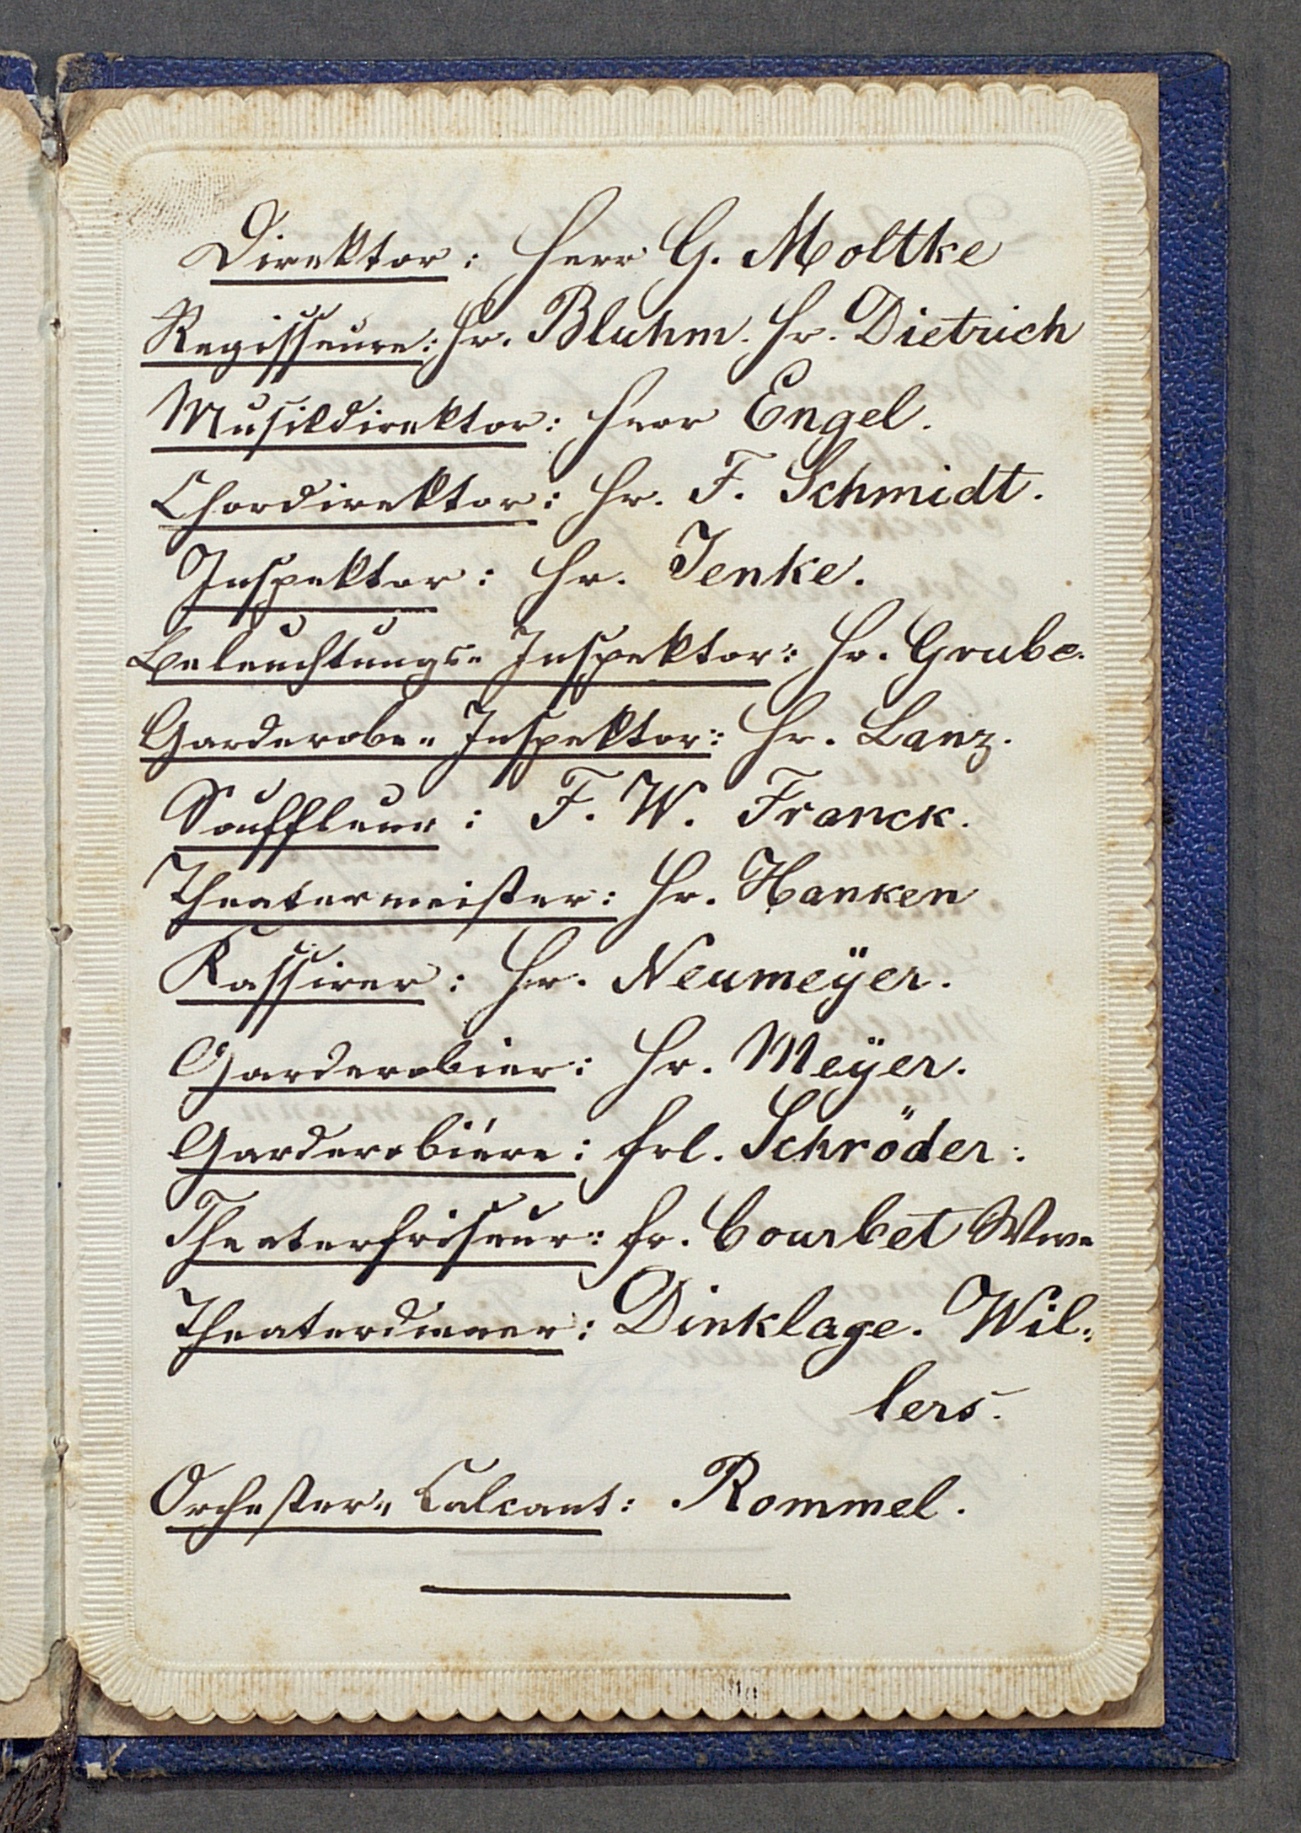 Direktor: Herr G. Moltke
Regisseure: Hr. Bluhm. Hr. Dietrich
Musikdirektor: Herr Engel.
Chordirektor: Hr. F. Schmidt.
Inspektor: Hr. Jenke.
Beleuchtungs-Inspektor: Hr. Grube.
Garderobe-Inspektor: Hr. Lanz.
Souffleur: F. W. Franck.
Theatermeister: Hr. Hanken
Kassirer: Hr. Neumeÿer.
Garderobier: Hr. Meÿer.
Garderobiére: Frl. Schröder.
Theaterfriseur: Fr. Courbet Wwe
Theaterdiener: Dinklage. Wil-
lers.
Orchester-Calcant: Rommel.